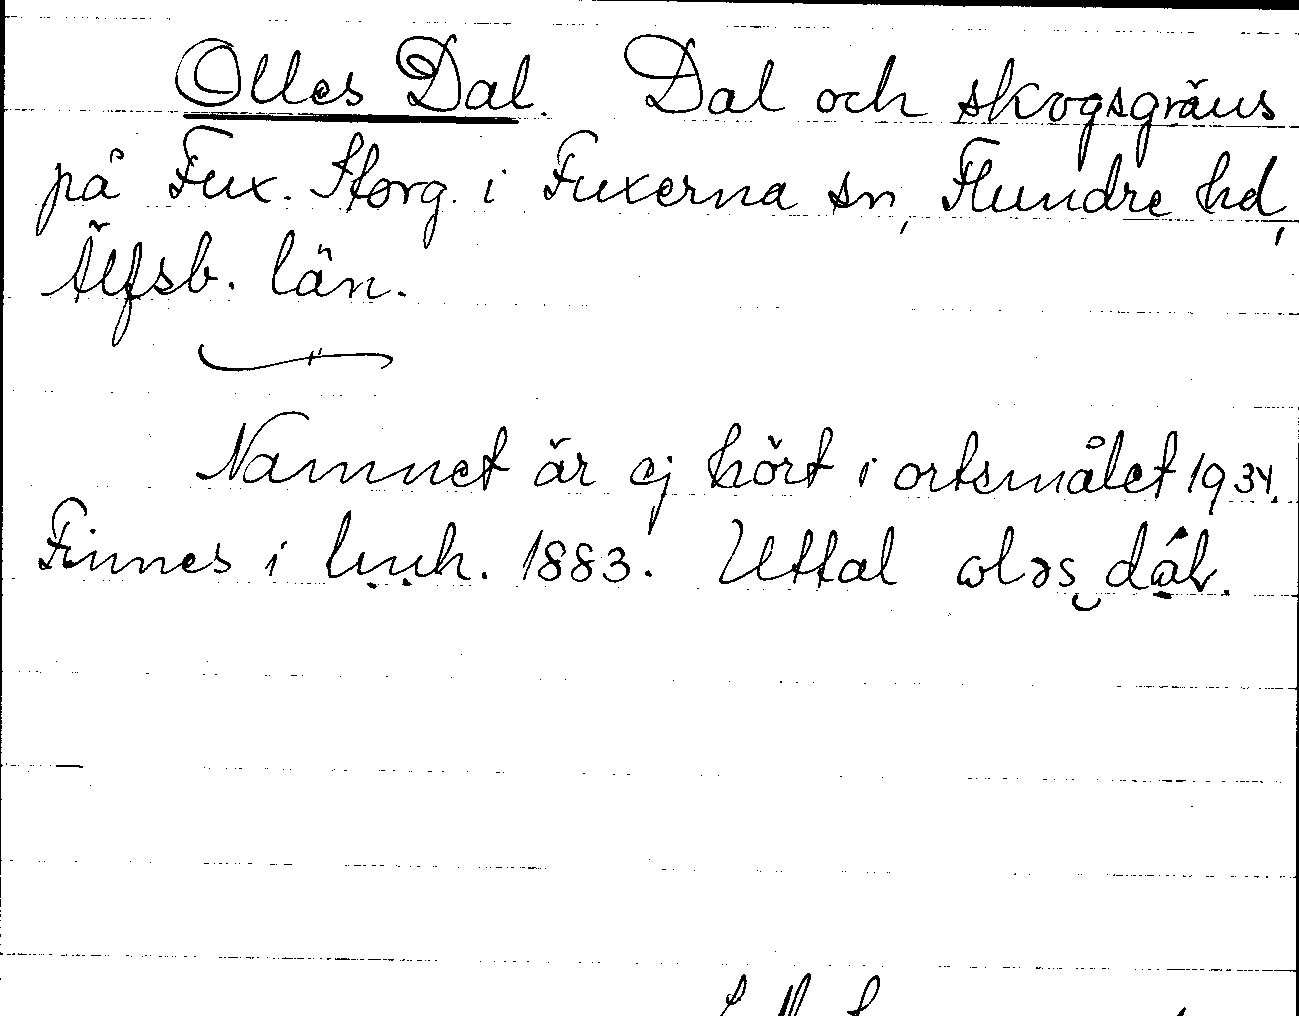 Olles Dal. Dal och skogsgräns
på Fux. Storg. i Fuxerna sn, Flundre hd,
Älfsb. län.
Namnet är ej hört i ortsmålet 1934.
Finnes i 1883. Uttal